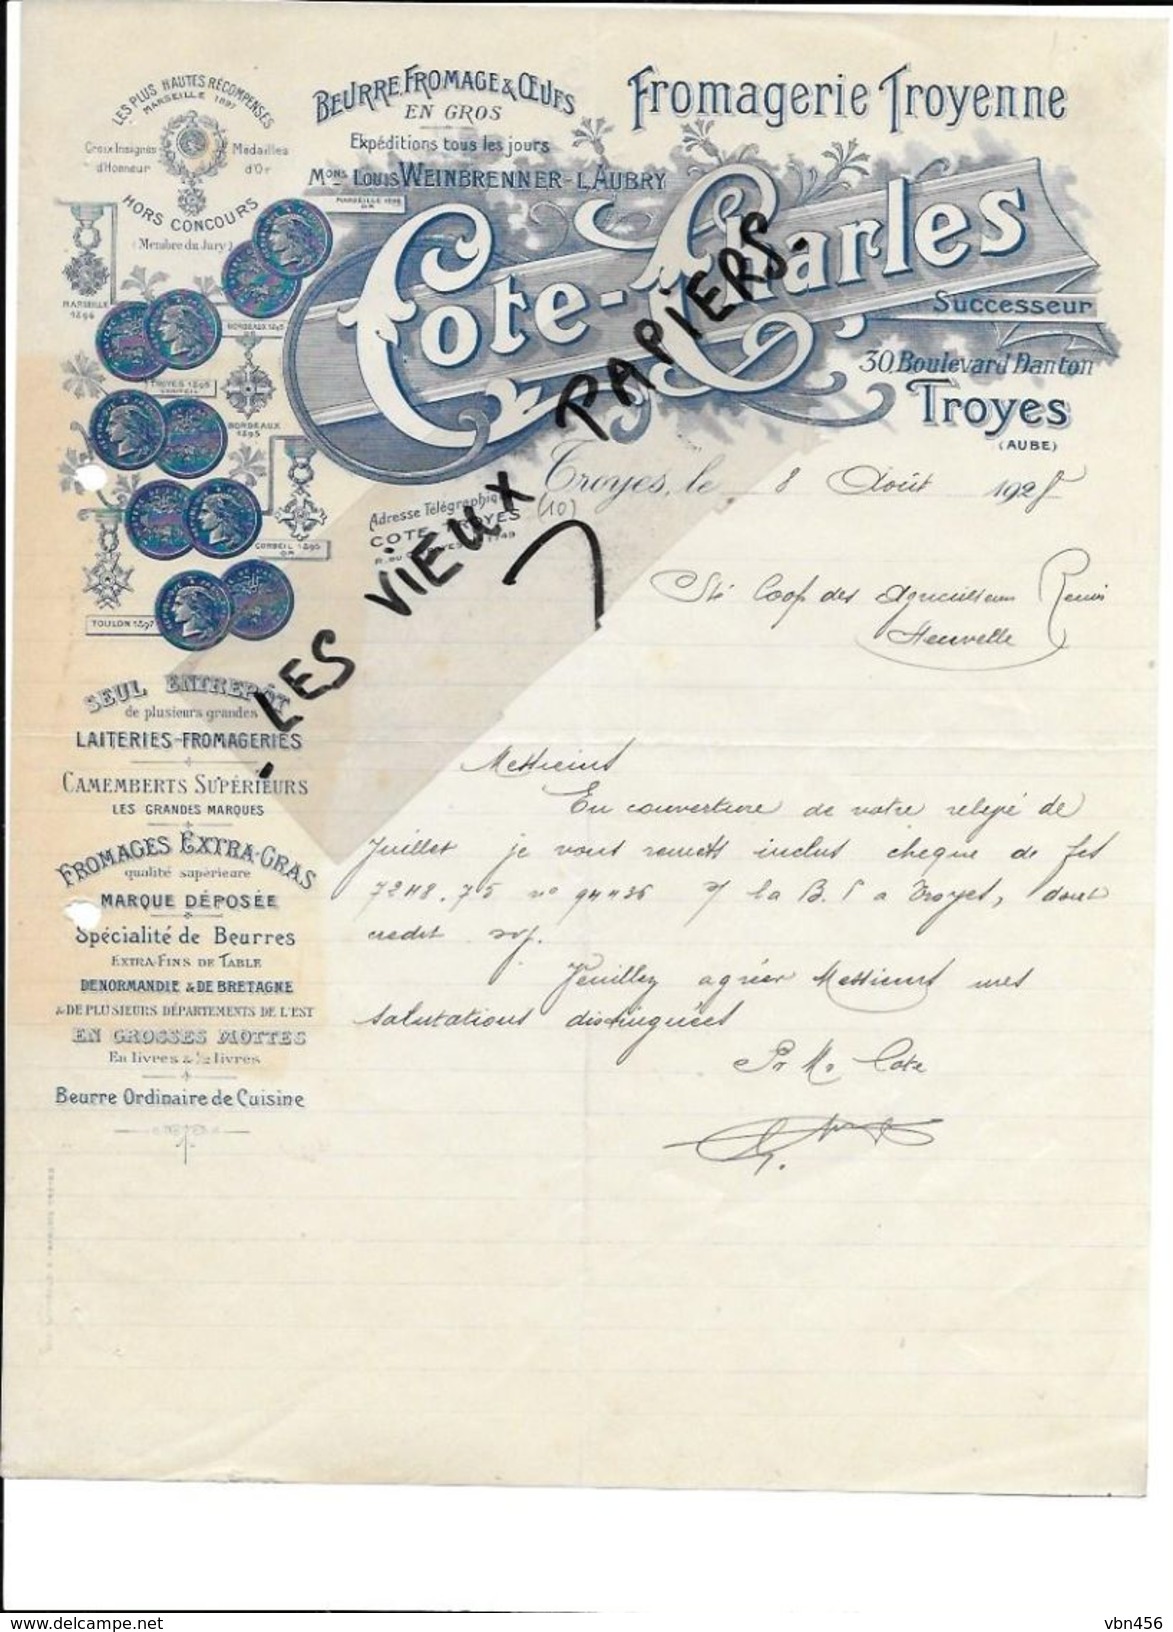 LES PLUS HAUTES RÉCOMPENSES
MARSEILLE 1897
Croix Insignes d'Honneur
Médailles d'Or
HORS CONCOURS
(Membre du Jury)
BEURRE, FROMAGE & ŒUFS
EN GROS
Expéditions tous les jours
MONS LOUIS WEINBRENNER-LAUBRY
Fromagerie Troyenne
COTE-CHARLES
Successeur
30, Boulevard Danton
TROYES
(AUBE)
MARSEILLE 1896
OR
MARSEILLE
1896
BORDEAUX 1895
OR
TROYES 1895
VERMEIL
BORDEAUX
1895
CORBEIL 1895
OR
TOULON 1897
Adresse Télégraphique
COTE-TROYES
1749
Troyes, le 8 Août 1925
(10)
LES VIEUX PAPIERS.
Sté Coop des Agriculteurs Réunis
Messieurs
En couverture de votre relevé de
Juillet je vous remets inclus chèque de frs
7248.75 no 94436 s/ la B. F a Troyes, dont
credit svp.
Veuillez agréer Messieurs mes
salutations distinguées
Pr Mr Cote
SEUL ENTREPÔT
de plusieurs grandes
LAITERIES-FROMAGERIES
CAMEMBERTS SUPÉRIEURS
LES GRANDES MARQUES
FROMAGES EXTRA-GRAS
qualité supérieure
MARQUE DÉPOSÉE
Spécialité de Beurres
EXTRA-FINS DE TABLE
DE NORMANDIE & DE BRETAGNE
& DE PLUSIEURS DÉPARTEMENTS DE L'EST
EN GROSSES MOTTES
En livres & 1/2 livres
Beurre Ordinaire de Cuisine
delcampe.net
vbn456